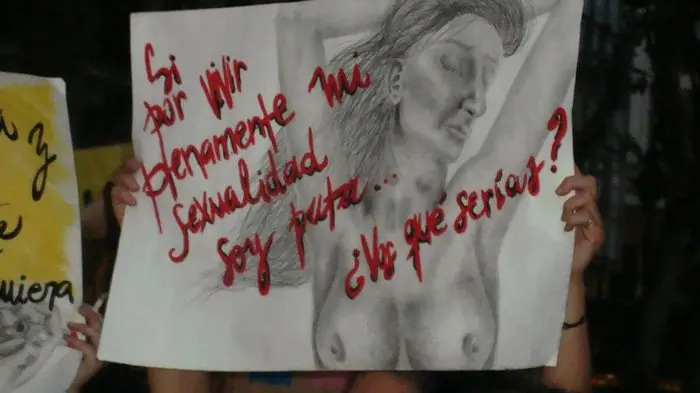 Si
por vivir
plenamente mi
sexualidad
soy puta...
¿Vos qué serías?
a y
e
uiera